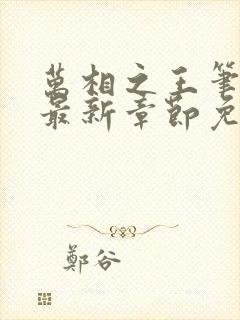 萬相之王筆
最新章節免
鄭谷